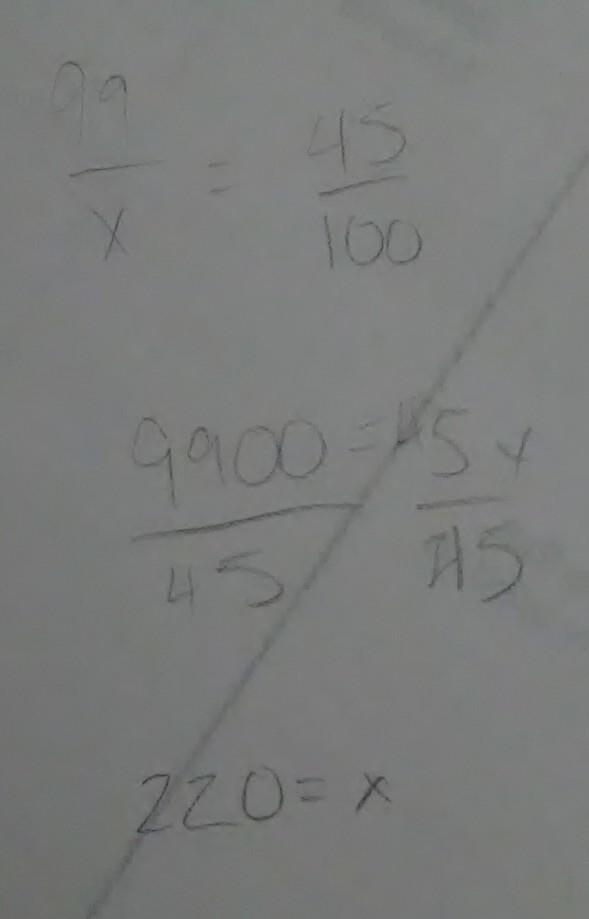 99 = 45
x 100
9900 = 45x
45 45
220 = x